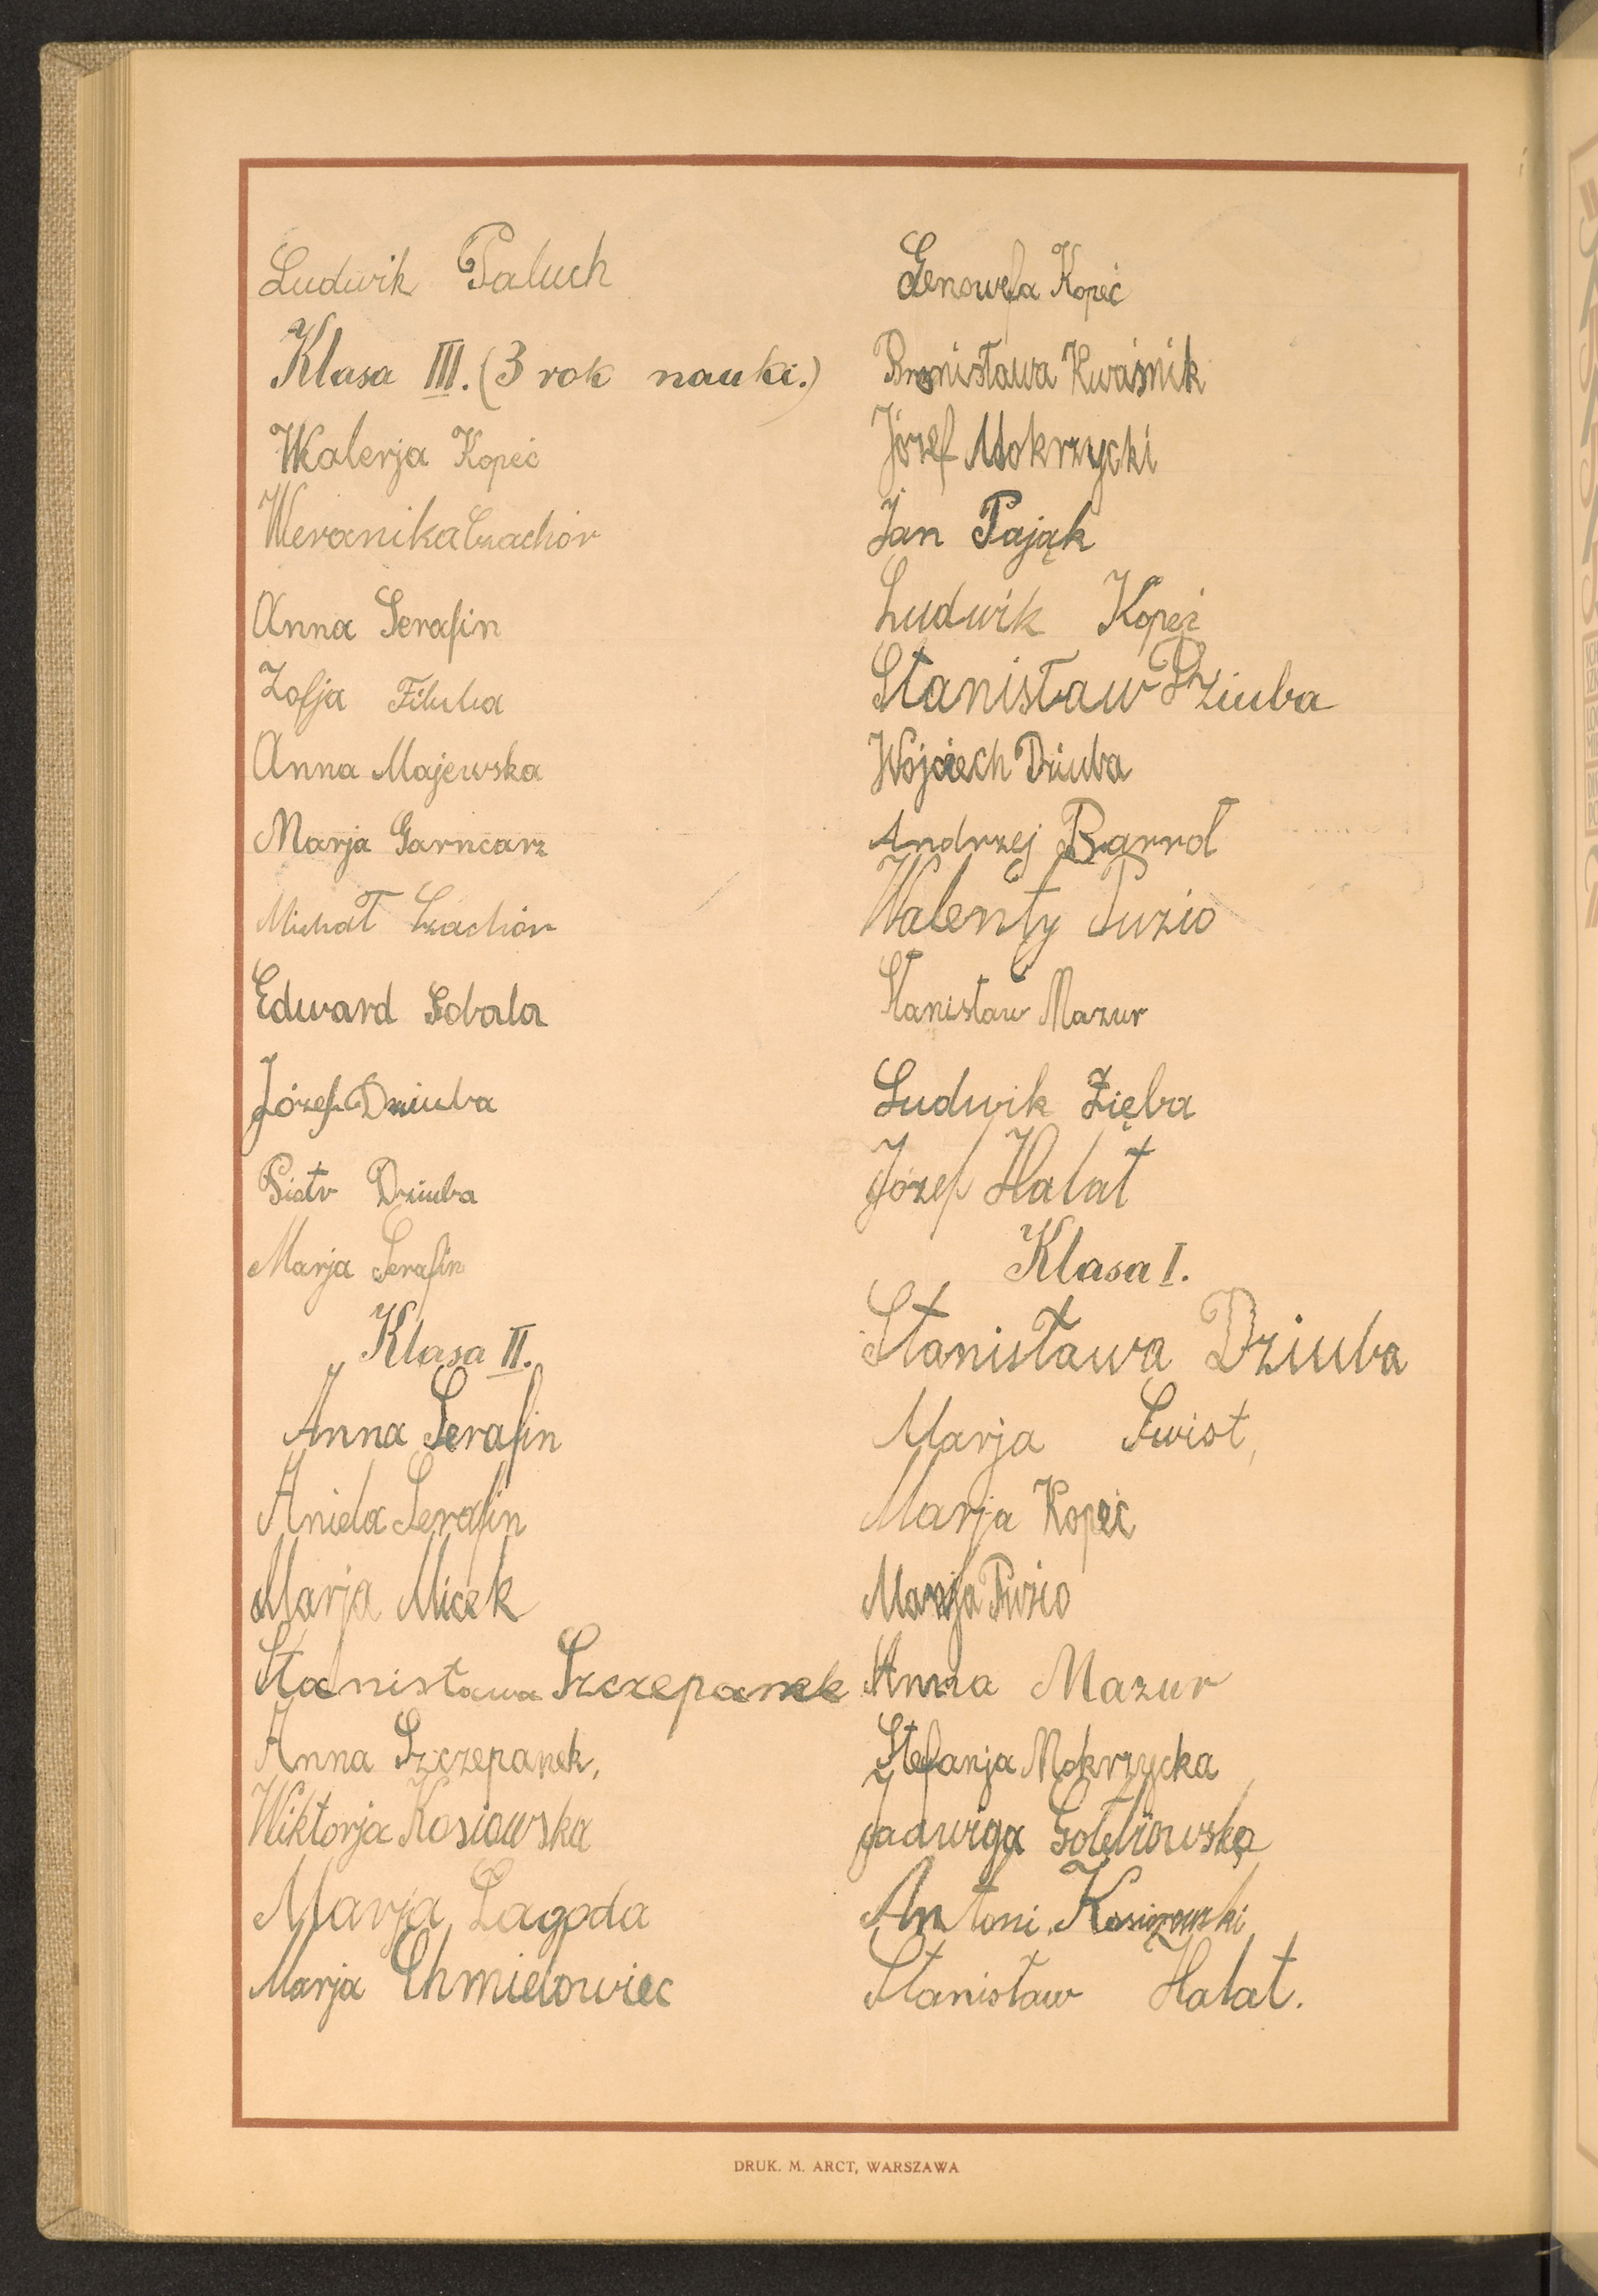 Ludwik Paluch
Klasa III. (3 rok nauki.)
Walerja Kopeć
Weronika Czachór
Anna Serafin
Zofja Filuba
Anna Majewska
Marja Garncarz
Michał Czachór
Edward Sobala
Józef Dziuba
Piotr Dziuba
Marja Serafin
Klasa II.
Anna Serafin
Aniela Serafin
Marja Micek
Stanisława Szczepanek
Anna Szczepanek,
Wiktorja Kosiowska
Marja Łagoda
Marja Chmielowiec
Genowefa Kopeć
Bronisława Kwaśnik
Józef Mokrzycki
Jan Pająk
Ludwik Kopeć
Stanisław Dziuba
Wojciech Dziuba
Andrzej
Walenty Puzio
Stanisław Mazur
Ludwik Zięba
Józef Halat
Klasa I.
Stanisława Dziuba
Marja Świst,
Marja Kopeć
Marja Puzio
Anna Mazur
Stefanja Mokrzycka
Jadwiga Gołębiowska
Antoni Kosiorowski
Stanisław Halat.
DRUK. M. ARCT, WARSZAWA